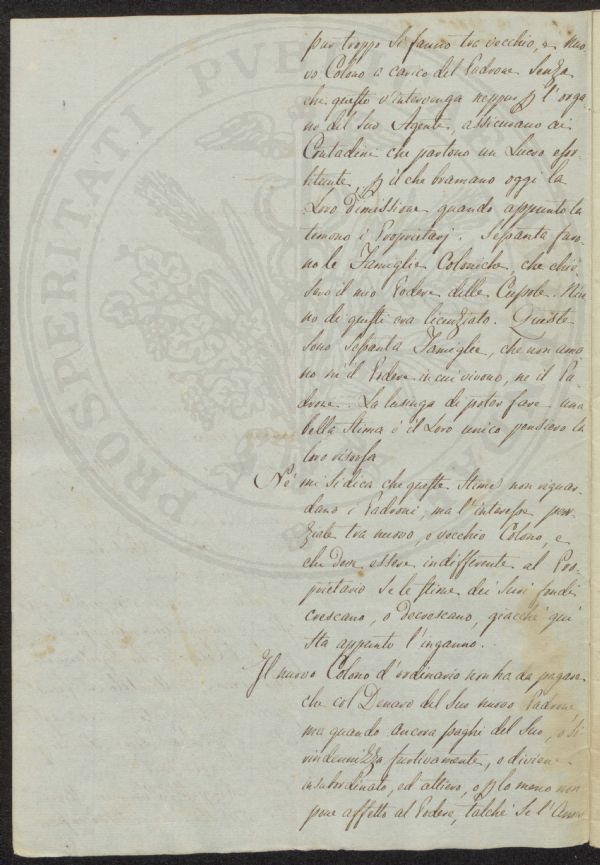 pur troppo si fanno tra vecchio, e nuo-
vo Colono a carico del Padrone senza
che questo v'intervenga neppur p l'orga-
no del suo Agente, assicurano ai
Contadini che partono un Lucro esor-
bitante, p il che bramano oggi la
loro dimissione quando appunto la
temono i Proprietarj. Sessanta furo-
no le Famiglie Coloniche, che chie-
sero il mio Podere delle Cupole. Niu-
no di questi era licenziato. Queste
sono Sessanta Famiglie, che non ama-
no nè il Podere in cui vivono, ne il Pa-
drone. La lusinga di poter fare una
bella stima è il loro unico pensiero la
loro risorsa
Né mi si dica che queste stime non riguar-
dano i Padroni, ma l'interesse par-
ziale tra nuovo, e vecchio Colono, e
che deve essere indifferente al Pro-
prietario se le stime dei suoi fondi
crescano, o decrescano, giacchè qui
sta appunto l'inganno.
Il nuovo Colono d'ordinario non ha da pagare
che col Denaro del suo nuovo Padrone,
ma quando ancora paghi del suo, o si
rindennizza furtivamente, o diviene
insubordinato, ed altiero, o p lo meno non
pone affetto al Podere, talchè se l'
PROSPERITATI PUBLICAE